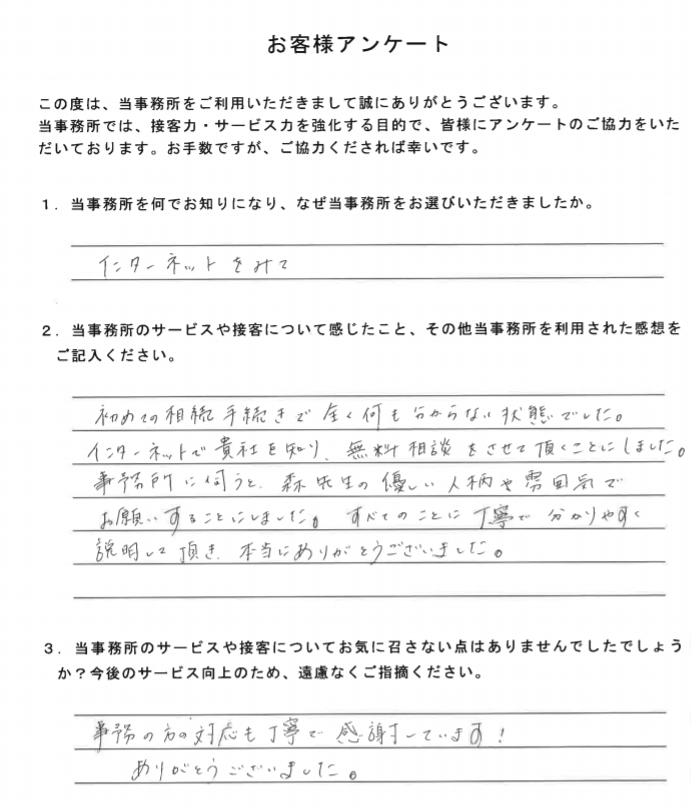 お客様アンケート
この度は、当事務所をご利用いただきまして誠にありがとうございます。
当事務所では、接客力・サービス力を強化する目的で、皆様にアンケートのご協力をいた
だいております。お手数ですが、ご協力くだされば幸いです。
１．当事務所を何でお知りになり、なぜ当事務所をお選びいただきましたか。
インターネットをみて
２．当事務所のサービスや接客について感じたこと、その他当事務所を利用された感想を
ご記入ください。
初めての相続手続きで全く何も分からない状態でした。
インターネットで貴社を知り、無料相談をさせて頂くことにしました。
事務所に伺うと、森先生の優しい人柄や雰囲気で
お願いすることにしました。すべてのことに丁寧で分かりやすく
説明して頂き、本当にありがとうございました。
３．当事務所のサービスや接客についてお気に召さない点はありませんでしたでしょう
か？今後のサービス向上のため、遠慮なくご指摘ください。
事務の方の対応も丁寧で感謝しています！
ありがとうございました。